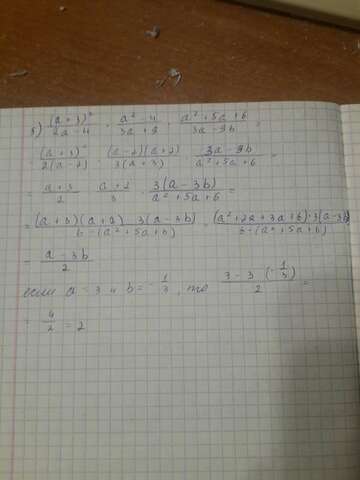 б) (a+3)²/(2a-4) · (a²-4)/(3a+9) : (a²+5a+6)/(3a-9b) =
(a+3)²/(2(a-2)) · ((a-2)(a+2))/(3(a+3)) · (3a-9b)/(a²+5a+6) =
= (a+3)/2 · (a+2)/3 · (3(a-3b))/(a²+5a+6) =
= ((a+3)(a+2) · 3(a-3b))/(6·(a²+5a+6)) = ((a²+2a+3a+6)·3(a-3b))/(6·(a²+5a+6))
= (a-3b)/2
если a=3 и b=-1/3, то (3-3·(-1/3))/2 =
= 4/2 = 2